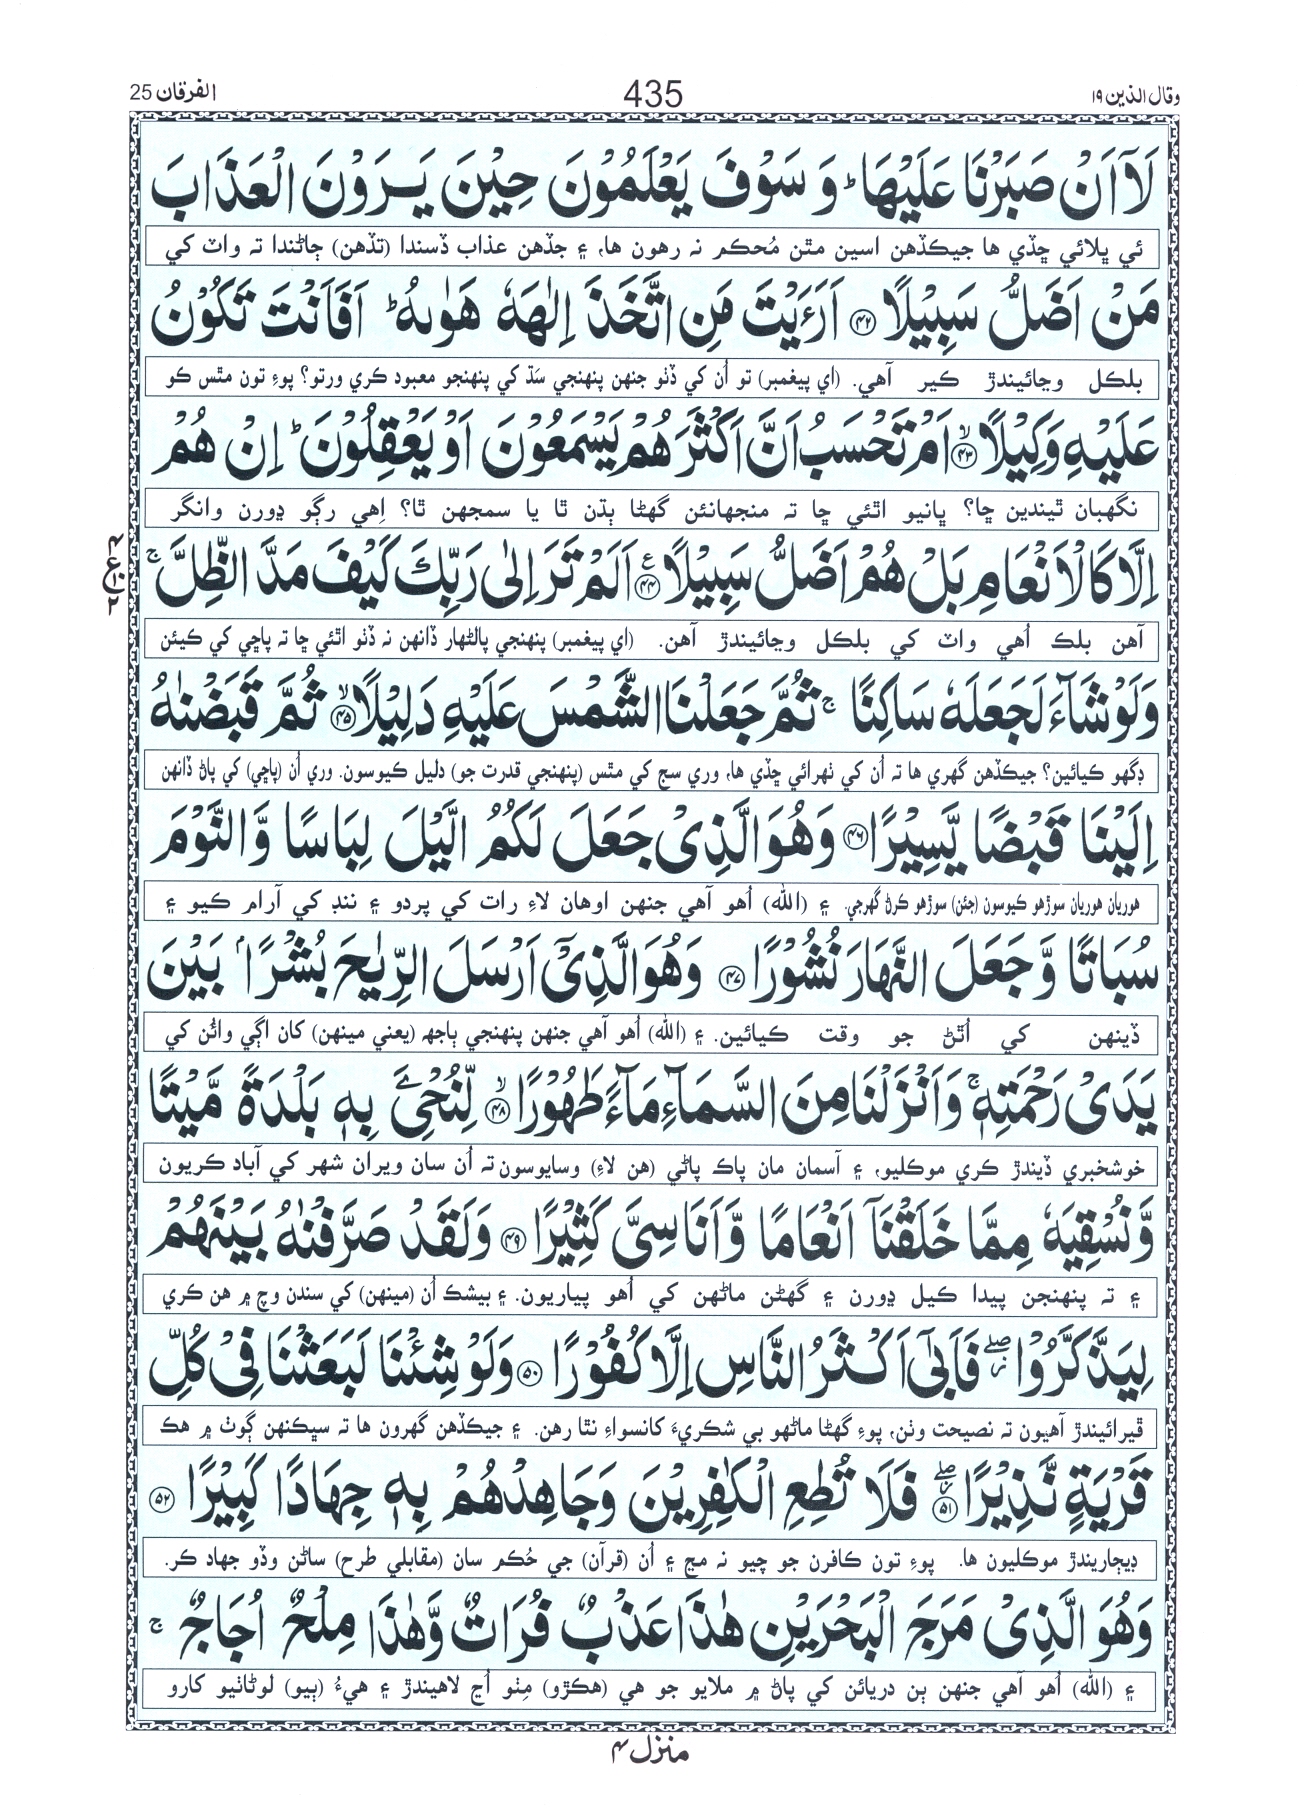 وقال الذين ١٩
435
الفرقان 25
لَآ اَنْ صَبَرْنَا عَلَيْهَا ؕ وَ سَوْفَ يَعْلَمُوْنَ حِيْنَ يَـرَوْنَ الْعَذَابَ
ئي ڀلائي ڇڏي ها جيڪڏهن اسين مٿن مُحڪم نہ رهون ها، ۽ جڏهن عذاب ڏسندا (تڏهن) ڄاڻندا تہ واٽ کي
مَنْ اَضَلُّ سَبِيْلًا ﴿۴۲﴾ اَرَءَيْتَ مَنِ اتَّخَذَ اِلٰهَهٗ هَوٰىهُ ؕ اَفَاَنْتَ تَكُوْنُ
بلڪل وڃائيندڙ ڪير آهي. (اي پيغمبر) تو اُن کي ڏٺو جنهن پنهنجي سَڌ کي پنهنجو معبود ڪري ورتو؟ پوءِ تون مٿس ڪو
عَلَيْهِ وَكِيْلًا ۙ﴿۴۳﴾ اَمْ تَحْسَبُ اَنَّ اَكْثَرَهُمْ يَسْمَعُوْنَ اَوْ يَعْقِلُوْنَ ؕ اِنْ هُمْ
نگهبان ٿيندين ڇا؟ ڀانيو اٿئي ڇا تہ منجهانئن گهڻا ٻڌن ٿا يا سمجهن ٿا؟ اِهي رڳو ڍورن وانگر
اِلَّا كَالْاَنْعَامِ بَلْ هُمْ اَضَلُّ سَبِيْلًا ﴿۴۴﴾ع اَلَمْ تَرَ اِلٰى رَبِّكَ كَيْفَ مَدَّ الظِّلَّ ۚ
آهن بلڪ اُهي واٽ کي بلڪل وڃائيندڙ آهن. (اي پيغمبر) پنهنجي پالڻهار ڏانهن نہ ڏٺو اٿئي ڇا تہ پاڇي کي ڪيئن
وَلَوْ شَآءَ لَجَعَلَهٗ سَاكِنًا ۚ ثُمَّ جَعَلْنَا الشَّمْسَ عَلَيْهِ دَلِيْلًا ۙ﴿۴۵﴾ ثُمَّ قَبَضْنٰهُ
ڊگهو ڪيائين؟ جيڪڏهن گهري ها تہ اُن کي ٺهرائي ڇڏي ها، وري سج کي مٿس (پنهنجي قدرت جو) دليل ڪيوسون. وري اُن (پاڇي) کي پاڻ ڏانهن
اِلَيْنَا قَبْضًا يَّسِيْرًا ﴿۴۶﴾ وَهُوَ الَّذِىْ جَعَلَ لَكُمُ الَّيْلَ لِبَاسًا وَّالنَّوْمَ
هوريان هوريان سوڙهو ڪيوسون (جئن) سوڙهو ڪرڻ گهرجي. ۽ (الله) اُهو آهي جنهن اوهان لاءِ رات کي پردو ۽ ننڊ کي آرام ڪيو ۽
سُبَاتًا وَّجَعَلَ النَّهَارَ نُشُوْرًا ﴿۴۷﴾ وَهُوَ الَّذِىْۤ اَرْسَلَ الرِّيٰحَ بُشْرًۢا بَيْنَ
ڏينهن کي اُٿڻ جو وقت ڪيائين. ۽ (الله) اُهو آهي جنهن پنهنجي ٻاجهہ (يعني مينهن) کان اڳي وائُن کي
يَدَىْ رَحْمَتِهٖ ۚ وَاَنْزَلْنَا مِنَ السَّمَآءِ مَآءً طَهُوْرًا ۙ﴿۴۸﴾ لِّنُحْیِۦَ بِهٖ بَلْدَةً مَّيْتًا
خوشخبري ڏيندڙ ڪري موڪليو، ۽ آسمان مان پاڪ پاڻي (هن لاءِ) وسايوسون تہ اُن سان ويران شهر کي آباد ڪريون
وَّنُسْقِيَهٗ مِمَّا خَلَقْنَاۤ اَنْعَامًا وَّاَنَاسِىَّ كَثِيْرًا ﴿۴۹﴾ وَلَقَدْ صَرَّفْنٰهُ بَيْنَهُمْ
۽ تہ پنهنجن پيدا ڪيل ڍورن ۽ گهڻن ماڻهن کي اُهو پياريون. ۽ بيشڪ اُن (مينهن) کي سندن وچ ۾ هن ڪري
لِيَذَّكَّرُوْا ۖ فَاَبٰٓى اَكْثَرُ النَّاسِ اِلَّا كُفُوْرًا ﴿۵۰﴾ وَلَوْ شِئْنَا لَبَعَثْنَا فِىْ كُلِّ
ڦيرائيندڙ آهيون تہ نصيحت وٺن، پوءِ گهڻا ماڻهو بي شڪريءَ کانسواءِ نٿا رهن. ۽ جيڪڏهن گهرون ها تہ سڀڪنهن ڳوٺ ۾ هڪ
قَرْيَةٍ نَّذِيْرًا ۖ﴿۵۱﴾ فَلَا تُطِعِ الْكٰفِرِيْنَ وَجَاهِدْهُمْ بِهٖ جِهَادًا كَبِيْرًا ﴿۵۲﴾
ڊيڄاريندڙ موڪليون ها. پوءِ تون ڪافرن جو چيو نہ مڃ ۽ اُن (قرآن) جي حُڪم سان (مقابلي طرح) ساڻن وڏو جهاد ڪر.
وَهُوَ الَّذِىْ مَرَجَ الْبَحْرَيْنِ هٰذَا عَذْبٌ فُرَاتٌ وَّهٰذَا مِلْحٌ اُجَاجٌ ۚ
۽ (الله) اُهو آهي جنهن ٻن دريائن کي پاڻ ۾ ملايو جو هي (هڪڙو) مِٺو اُڃ لاهيندڙ ۽ هيءُ (ٻيو) لوڻاٺيو کارو
منزل ۴